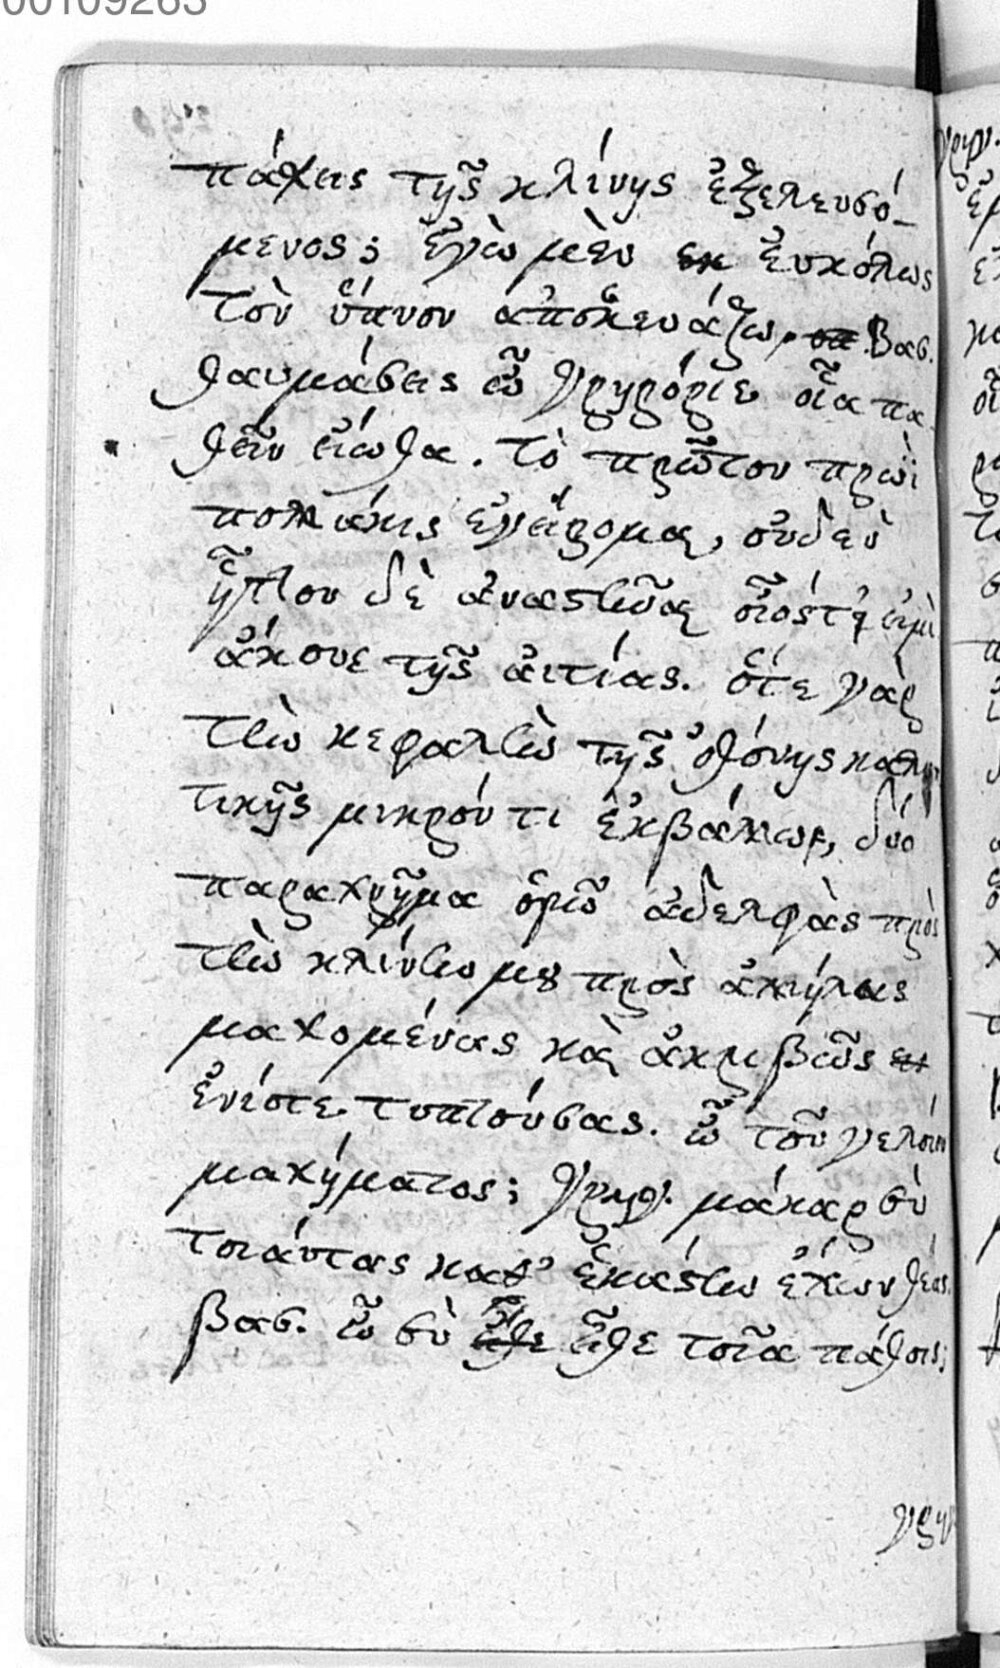 00109263
πάχεις τῆς κλίνης ἐξελευσό-
μενος; ἐγὼ μὲν ἐυκόλως
τὸν ὕπνον ἀποσκευάζω, Βασ.
θαυμάσεις ὦ Γρηγόριε οἷα πα-
θεῖν εἴωθα. Τὸ πρῶτον πρωῒ
πολλάκις ἐγείρομαι, οὐδὲν
ἧττον δὲ ἀναστῆναι οἷόστ' εἰμὶ
ἄκουε τῆς ἀιτίας. ὅτε γὰρ
τὴν κεφαλὴν τῆς ὀθόνης καλυπ
τικῆς μικρόν τι ἐκβάλλω, δύο
παραχρῆμα ὁρῶ ἀδελφὰς πρὸς
τὴν κλίνην μου πρὸς ἀλλήλας
μαχομένας καὶ ἀκριβῶς
ἐνίοτε τυπτούσας. ὦ τοῦ γελοίου
μαχήματος; Γρηγ. μάκαρ σὺ
τοιάυτας καθ' ἑκάστην ἔχων θέας.
βασ. ὦ σὺ εἴθε τοῖα πάθοις;
γρηγ